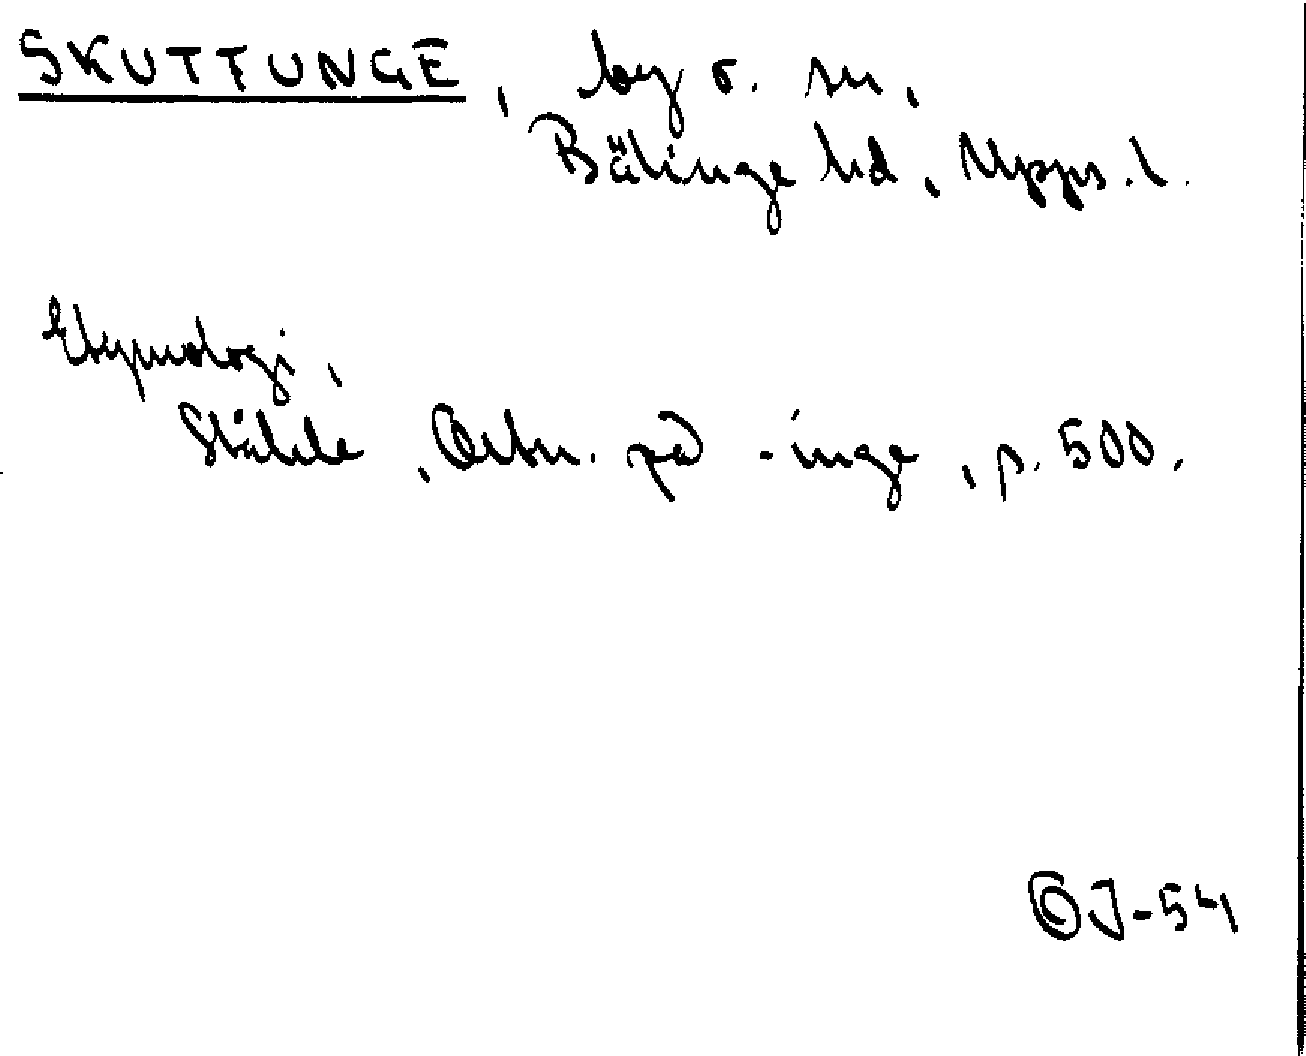 SKUTTUNGE, by o. sn,
Bälinge hd, Upps. l.
Etymologi,
Ståhle, Ortn. på -inge, p. 500.
©J-54